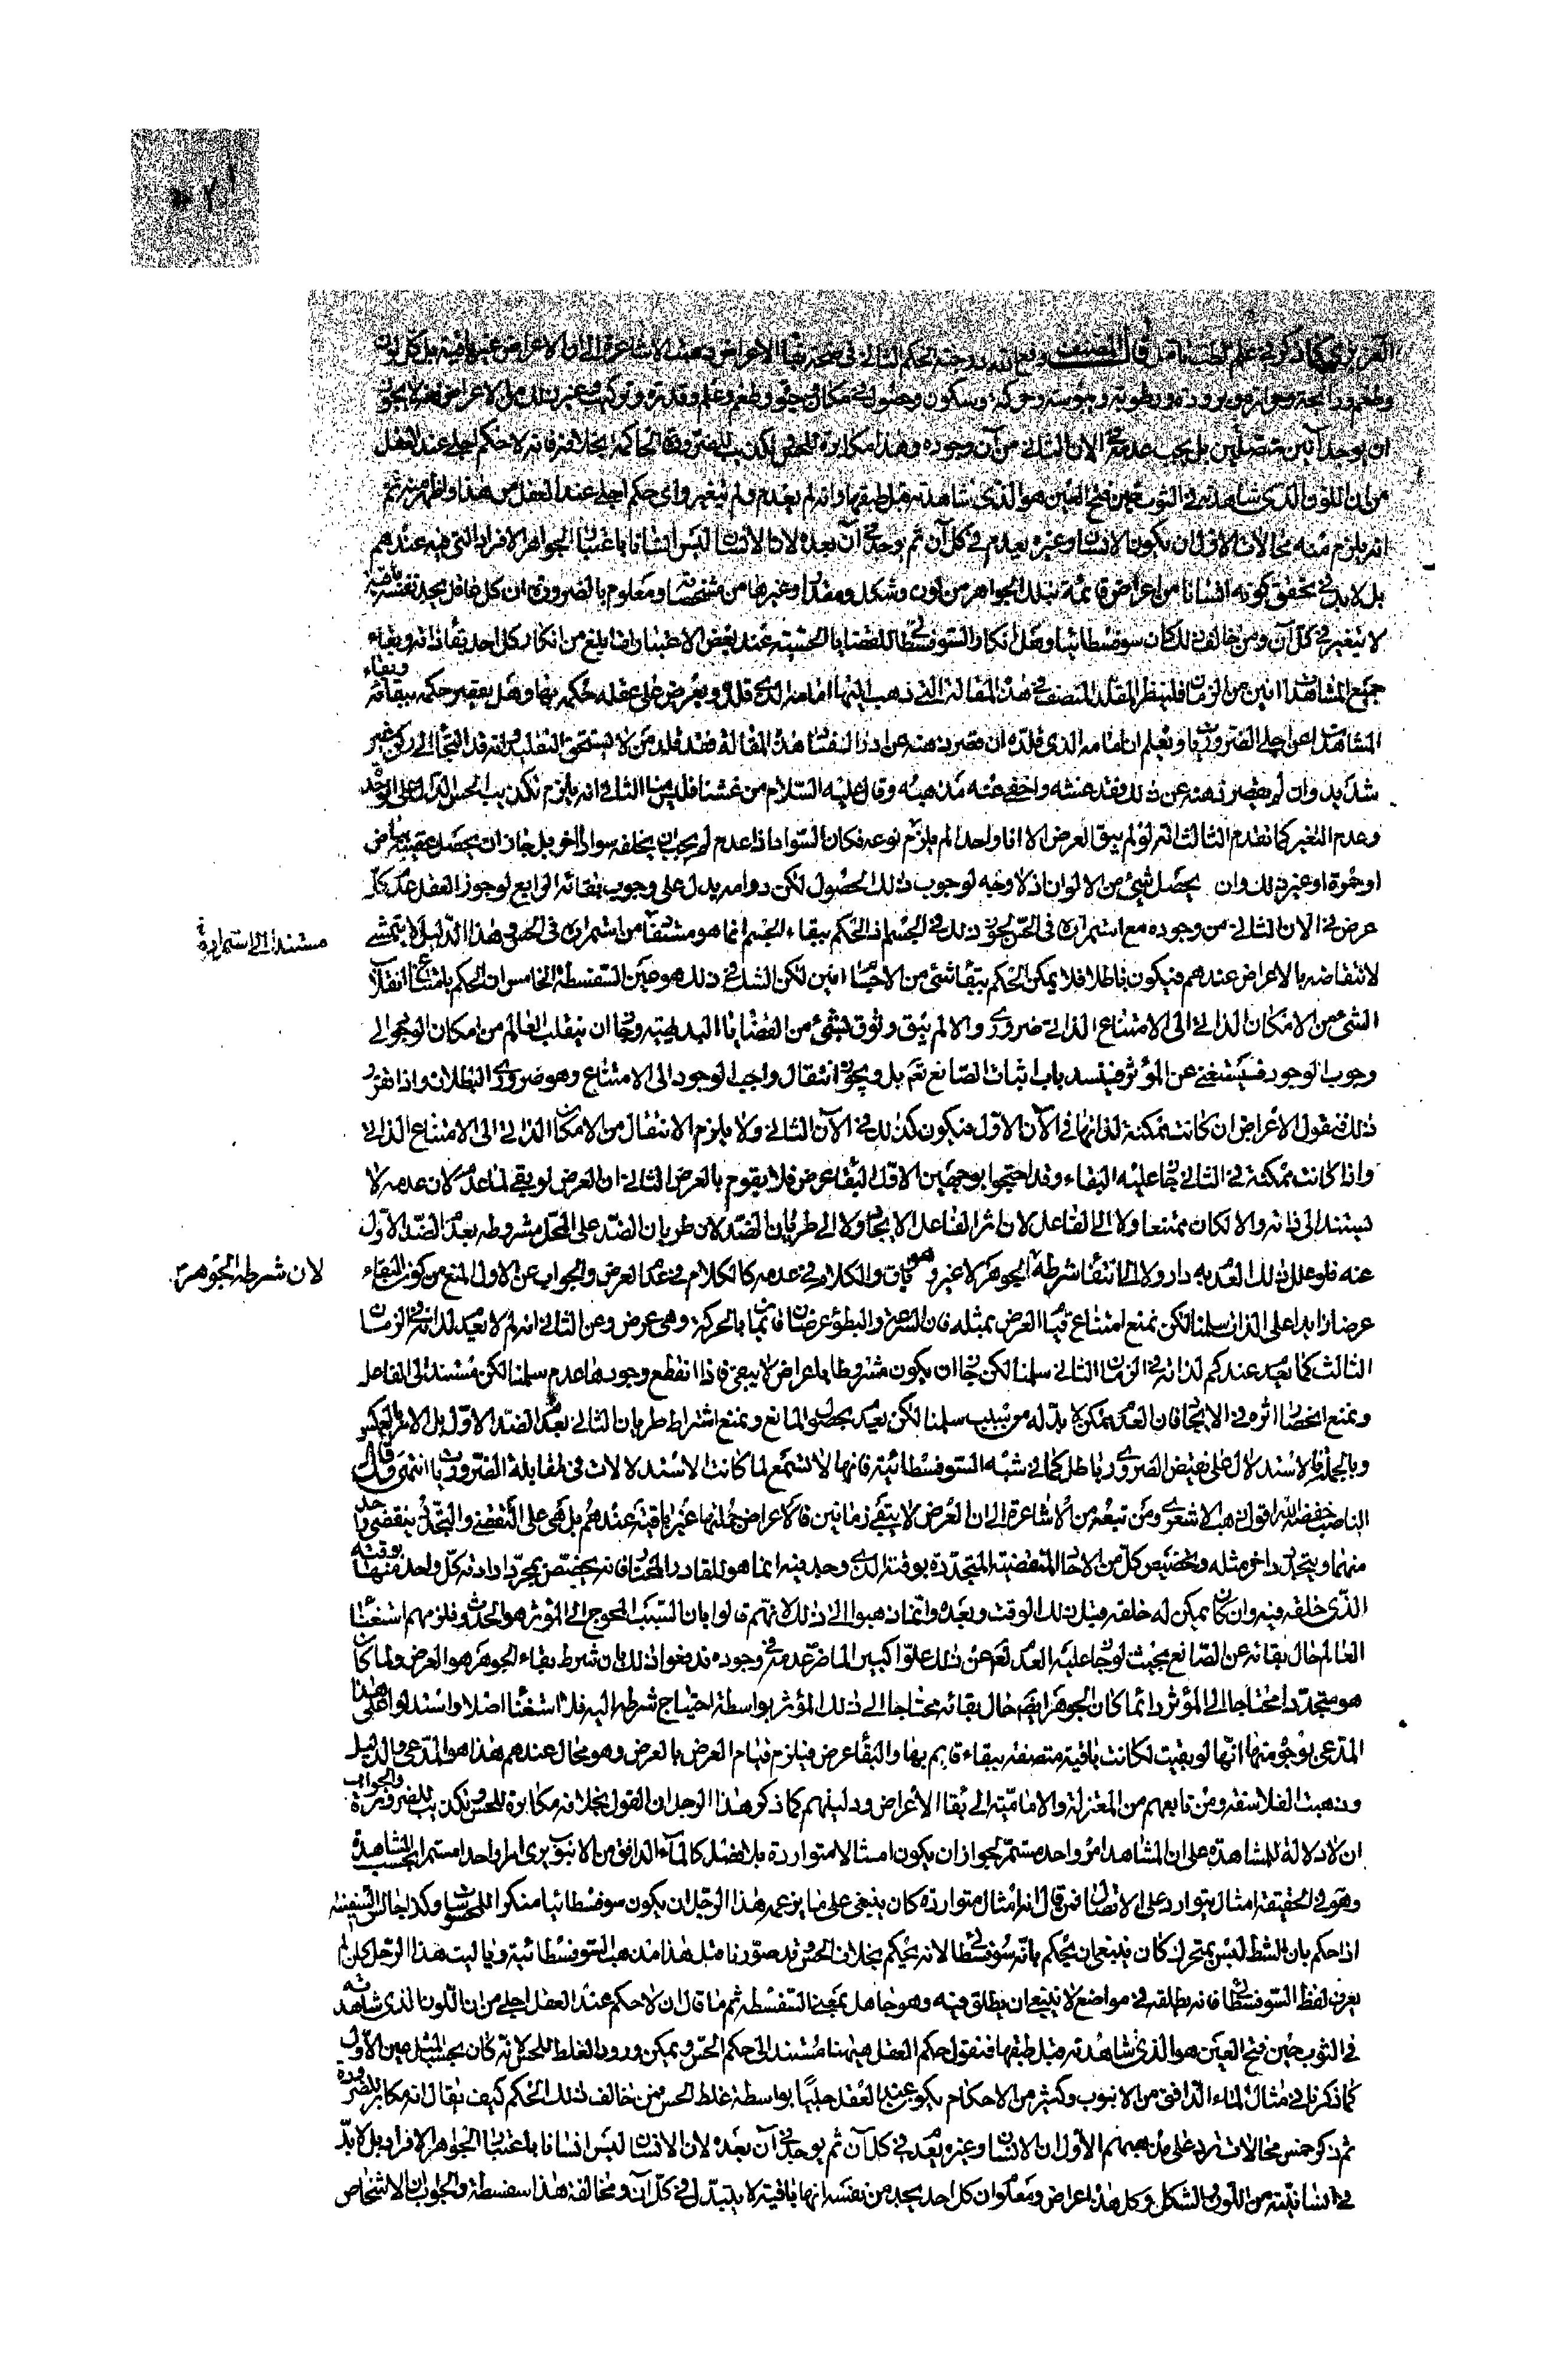 الغريزي كما ذكر في علم الطب تأمل قال المصنف رفع الله درجته الحكم الثاني في صحة بقاء الاعراض ذهبت الاشاعرة الى ان الاعراض غير باقية بل كل لون
وطعم ورائحة وحرارة وبرودة ورطوبة ويبوسة وحركة وسكون وحصول في مكان وحيوة وطعم وعلم وقدرة وتركيب وغير ذلك من الاعراض فانه لا يجوز
ان يوجد آنين متصلين بل يجب عدمه في الان الثاني من آن وجوده وهذا مكابرة للحس وتكذيب للضرورة الحاكمة بخلافه فانه لا حكم اجلى عند العقل
من ان اللون الذي شاهدته في الثوب حين فتح العين هو الذي شاهدته قبل طبقها وانه لم يعدم ولم يتغير واي حكم اجلى عند العقل من هذا واظهر منه ثم
انه يلزم منه محالات الاول ان يكون الانسان وغيره يعدم في كل آن ثم يوجد في آن بعده لان الانسان ليس انسانا باعتبار الجواهر الافراد التي فيه عندهم
بل لا بد في تحقق كونه انسانا من اعراض قائمة بتلك الجواهر من لون وشكل ومقدار وغيرها من مشخصاته ومعلوم بالضرورة ان كل عاقل يجد نفسه باقية
لا يتغير في كل آن ومن خالف ذلك كان سوفسطائيا وهل انكار السوفسطائي للقضايا الحسية عند بعض الاعتبارات ابلغ من انكار كل احد بقاء ذاته وبقاء
جميع المشاهدات آنين من الزمان فلينظر المقلد المنصف في هذه المقالة التي ذهب اليها امامه الذي قلده ويعرض على عقله حكمه بها وهل يقصر حكمه ببقائه وبقاء
المشاهدات عن اجلى الضروريات ويعلم ان امامه الذي قلده ان قصر ذهنه عن ادراك فساد هذه المقالة فقد قلد من لا يستحق التقليد وانه قد التجأ الى ركن غير
شديد وان لم يقصر ذهنه عن ذلك فقد غشه واخفى عنه مذهبه وقال عليه السلام من غشنا فليس منا الثاني انه يلزم تكذيب الحس الدال على الوحدة
وعدم التغير كما تقدم الثالث انه لو لم يبق العرض الا انا واحدا لم يلزم نوعه فكان السواد اذا عدم لم يجب ان يخلفه سواد آخر بل جاز ان يحصل عقيبه بياض
او حمرة او غير ذلك وان يحصل شيء من الالوان اذ لا وجه لوجوب ذلك الحصول لكن دوامه يدل على وجوب بقائه الرابع لو جوز العقل عدم كل
عرض في الان الثاني من وجوده مع استمراره في الحس لجوز ذلك في الجسم اذ الحكم ببقاء الجسم انما هو مستفاد من استمراره في الحس وهذا الدليل لا يتمشى
مستندا الى استمراره
لانتقاضه بالاعراض عندهم فيكون باطلا فلا يمكن الحكم ببقاء شيء من الاجسام آنين لكن الشك في ذلك هو عين السفسطة الخامس ان الحكم بامتناع انقلاب
الشيء من الامكان الذاتي الى الامتناع الذاتي ضروري والا لم يبق وثوق بشيء من القضايا البديهية وجاز ان ينقلب العالم من امكان الوجود الى
وجوب الوجود فيستغني عن المؤثر فينسد باب اثبات الصانع تعم بل ويجوز انتقال واجب الوجود الى الامتناع وهو ضروري البطلان واذا تقرر
ذلك فنقول الاعراض ان كانت ممكنة لذاتها في الآن الاول فيكون كذلك في الآن الثاني ولا يلزم الانتقال من الامكان الذاتي الى الامتناع الذاتي
واذا كانت ممكنة في الثاني جاز عليه البقاء وقد احتجوا بوجهين الاول البقاء عرض فلا يقوم بالعرض الثاني ان العرض لو بقي لما عدم لان عدمه لا
يستند الى ذاته والا لكان ممتنعا ولا الى الفاعل لان اثر الفاعل الايجاد ولا الى طريان الضد لان طريان الضد على المحل مشروط بعدم الضد الاول
عنه فلو علل ذلك العدم به دار ولا الى انتفاء شرطه لان شرطه الجوهر لا غير وهو باق والكلام في عدمه كالكلام في عدم العرض والجواب عن الاول المنع من كون البقاء
لان شرطه الجوهر
عرضا زايدا على الذات سلمنا لكن نمنع امتناع قيام العرض بمثله فان السرعة والبطؤ عرضان قائمان بالحركة وهي عرض وعن الثاني انه لم لا يعدم لذاته في الزمان
الثالث كما يعدم عندكم لذاته في الزمان الثاني سلمنا لكن جاز ان يكون مشروطا باعراض لا يبقى فاذا انقطع وجودها عدم سلمنا لكن مستند الى الفاعل
ونمنع انحصار اثره في الايجاد فان العدم ممكن لا بد له من سبب سلمنا لكن يعدم بحصول المانع ونمنع اشتراط طريان الثاني بعدم الضد الاول بل الامر بالعكس
وبالجملة فالاستدلال على نقيض الضروري باطل كما في شبه السوفسطائية فانها لا تسمع لما كانت الاستدلالات في مقابلة الضروريات انتهى وقال
الناصب خفضه الله اقول ذهب الاشعري ومن تبعه من الاشاعرة الى ان العرض لا يبقى زمانين فالاعراض جملتها غير باقية عندهم بل هي على التقضي والتجدد ينقضي واحد
منها ويتجدد آخر مثله وتخصيص كل من الاحاد المنقضية المتجددة بوقته الذي وجد فيه انما هو للقادر المختار فانه يخصص بمجرد ارادته كل واحد منها بوقته
الذي خلقه فيه وان كان يمكن له خلقه قبل ذلك الوقت وبعده وانما ذهبوا الى ذلك لانهم قالوا بان السبب المحوج الى المؤثر هو الحدوث فلزمهم استغناء
العالم حال بقائه عن الصانع بحيث لو جاز عليه العدم تعم عن ذلك علوا كبيرا لما ضر عدمه في وجوده فدفعوا ذلك بان شرط بقاء الجوهر هو العرض ولما كان
هو متجددا محتاجا الى المؤثر دائما كان الجوهر ايضا حال بقائه محتاجا الى ذلك المؤثر بواسطة احتياج شرطه اليه فلا استغناء اصلا واستدلوا على هذا
المدعى بوجوه منها انها لو بقيت لكانت باقية متصفة ببقاء قايم بها والبقاء عرض فيلزم قيام العرض بالعرض وهو محال عندهم هذا هو المدعى والدليل
وذهبت الفلاسفة ومن تابعهم من المعتزلة والامامية الى بقاء الاعراض ودليلهم كما ذكر هذا الرجل ان القول بخلافه مكابرة للحس وتكذيب للضرورة والجواب
ان لا دلالة للمشاهدة على ان المشاهد امر واحد مستمر لجواز ان يكون امثالا متواردة بلا فصل كالماء الدافق من الانبوب يرى امرا واحدا مستمرا بحسب المشاهدة
وهو في الحقيقة امثال يتوارد على الاتصال فمن قال انه امثال متواردة كان ينبغي على ما يزعمه هذا الرجل ان يكون سوفسطائيا منكرا للمحسوسات وكذا جالس السفينة
اذا حكم بان الشط ليس بمتحرك كان ينبغي ان يحكم بانه سوفسطائي لانه يحكم بخلاف الحس وقد صورنا مثل هذا مذهب السوفسطائية ويا ليت هذا الرجل كان لم
يعرف لفظ السوفسطائي فانه يطلقه في مواضع لا ينبغي ان يطلق فيه وهو جاهل بمعنى السفسطة ثم ما قال ان لا حكم عند العقل اجلى من ان اللون الذي شاهدته
في الثوب حين فتح العين هو الذي شاهدته قبل طبقها فنقول حكم العقل هيهنا مستند الى حكم الحس ويمكن ورود الغلط للحس لانه كان يحسب المثل عين الاول
كما ذكرنا في مثال الماء الدافق من الانبوب وكثير من الاحكام يكون عند العقل جليا بواسطة غلط الحس فمن خالف ذلك الحكم كيف يقال انه مكابر للضرورة
ثم ذكر خمس محالات ترد على مذهبهم الاول ان الانسان وغيره يعدم في كل آن ثم يوجد في آن بعده لان الانسان ليس انسانا باعتبار الجواهر الافراد بل لا بد
في انسانيته من اللون والشكل وكل هذه اعراض ومعلوم ان كل احد يجد من نفسه انها باقية لا يتبدل في كل آن ومخالفة هذا سفسطة والجواب ان الاشخاص